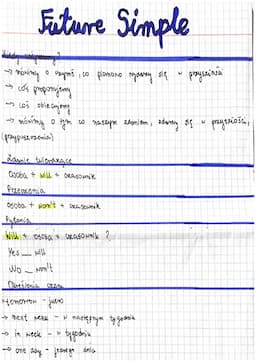 Future Simple
Kiedy używamy?
→ mówimy o czymś, co wydarzy się w przyszłości
→ coś proponujemy
→ coś obiecujemy
→ mówimy o tym co naszym zdaniem, zdarzy się w przyszłości,
(przypuszczenia)
Zdanie twierdzące
Osoba + will + czasownik
Przeczenia
osoba + won't + czasownik
Pytania
Will + osoba + czasownik ?
Yes _ will
No _ won't
Określenia czasu
tomorrow - jutro
→ next week - w następnym tygodniu
→ in week - w tygodniu
→ one day - jednego dnia